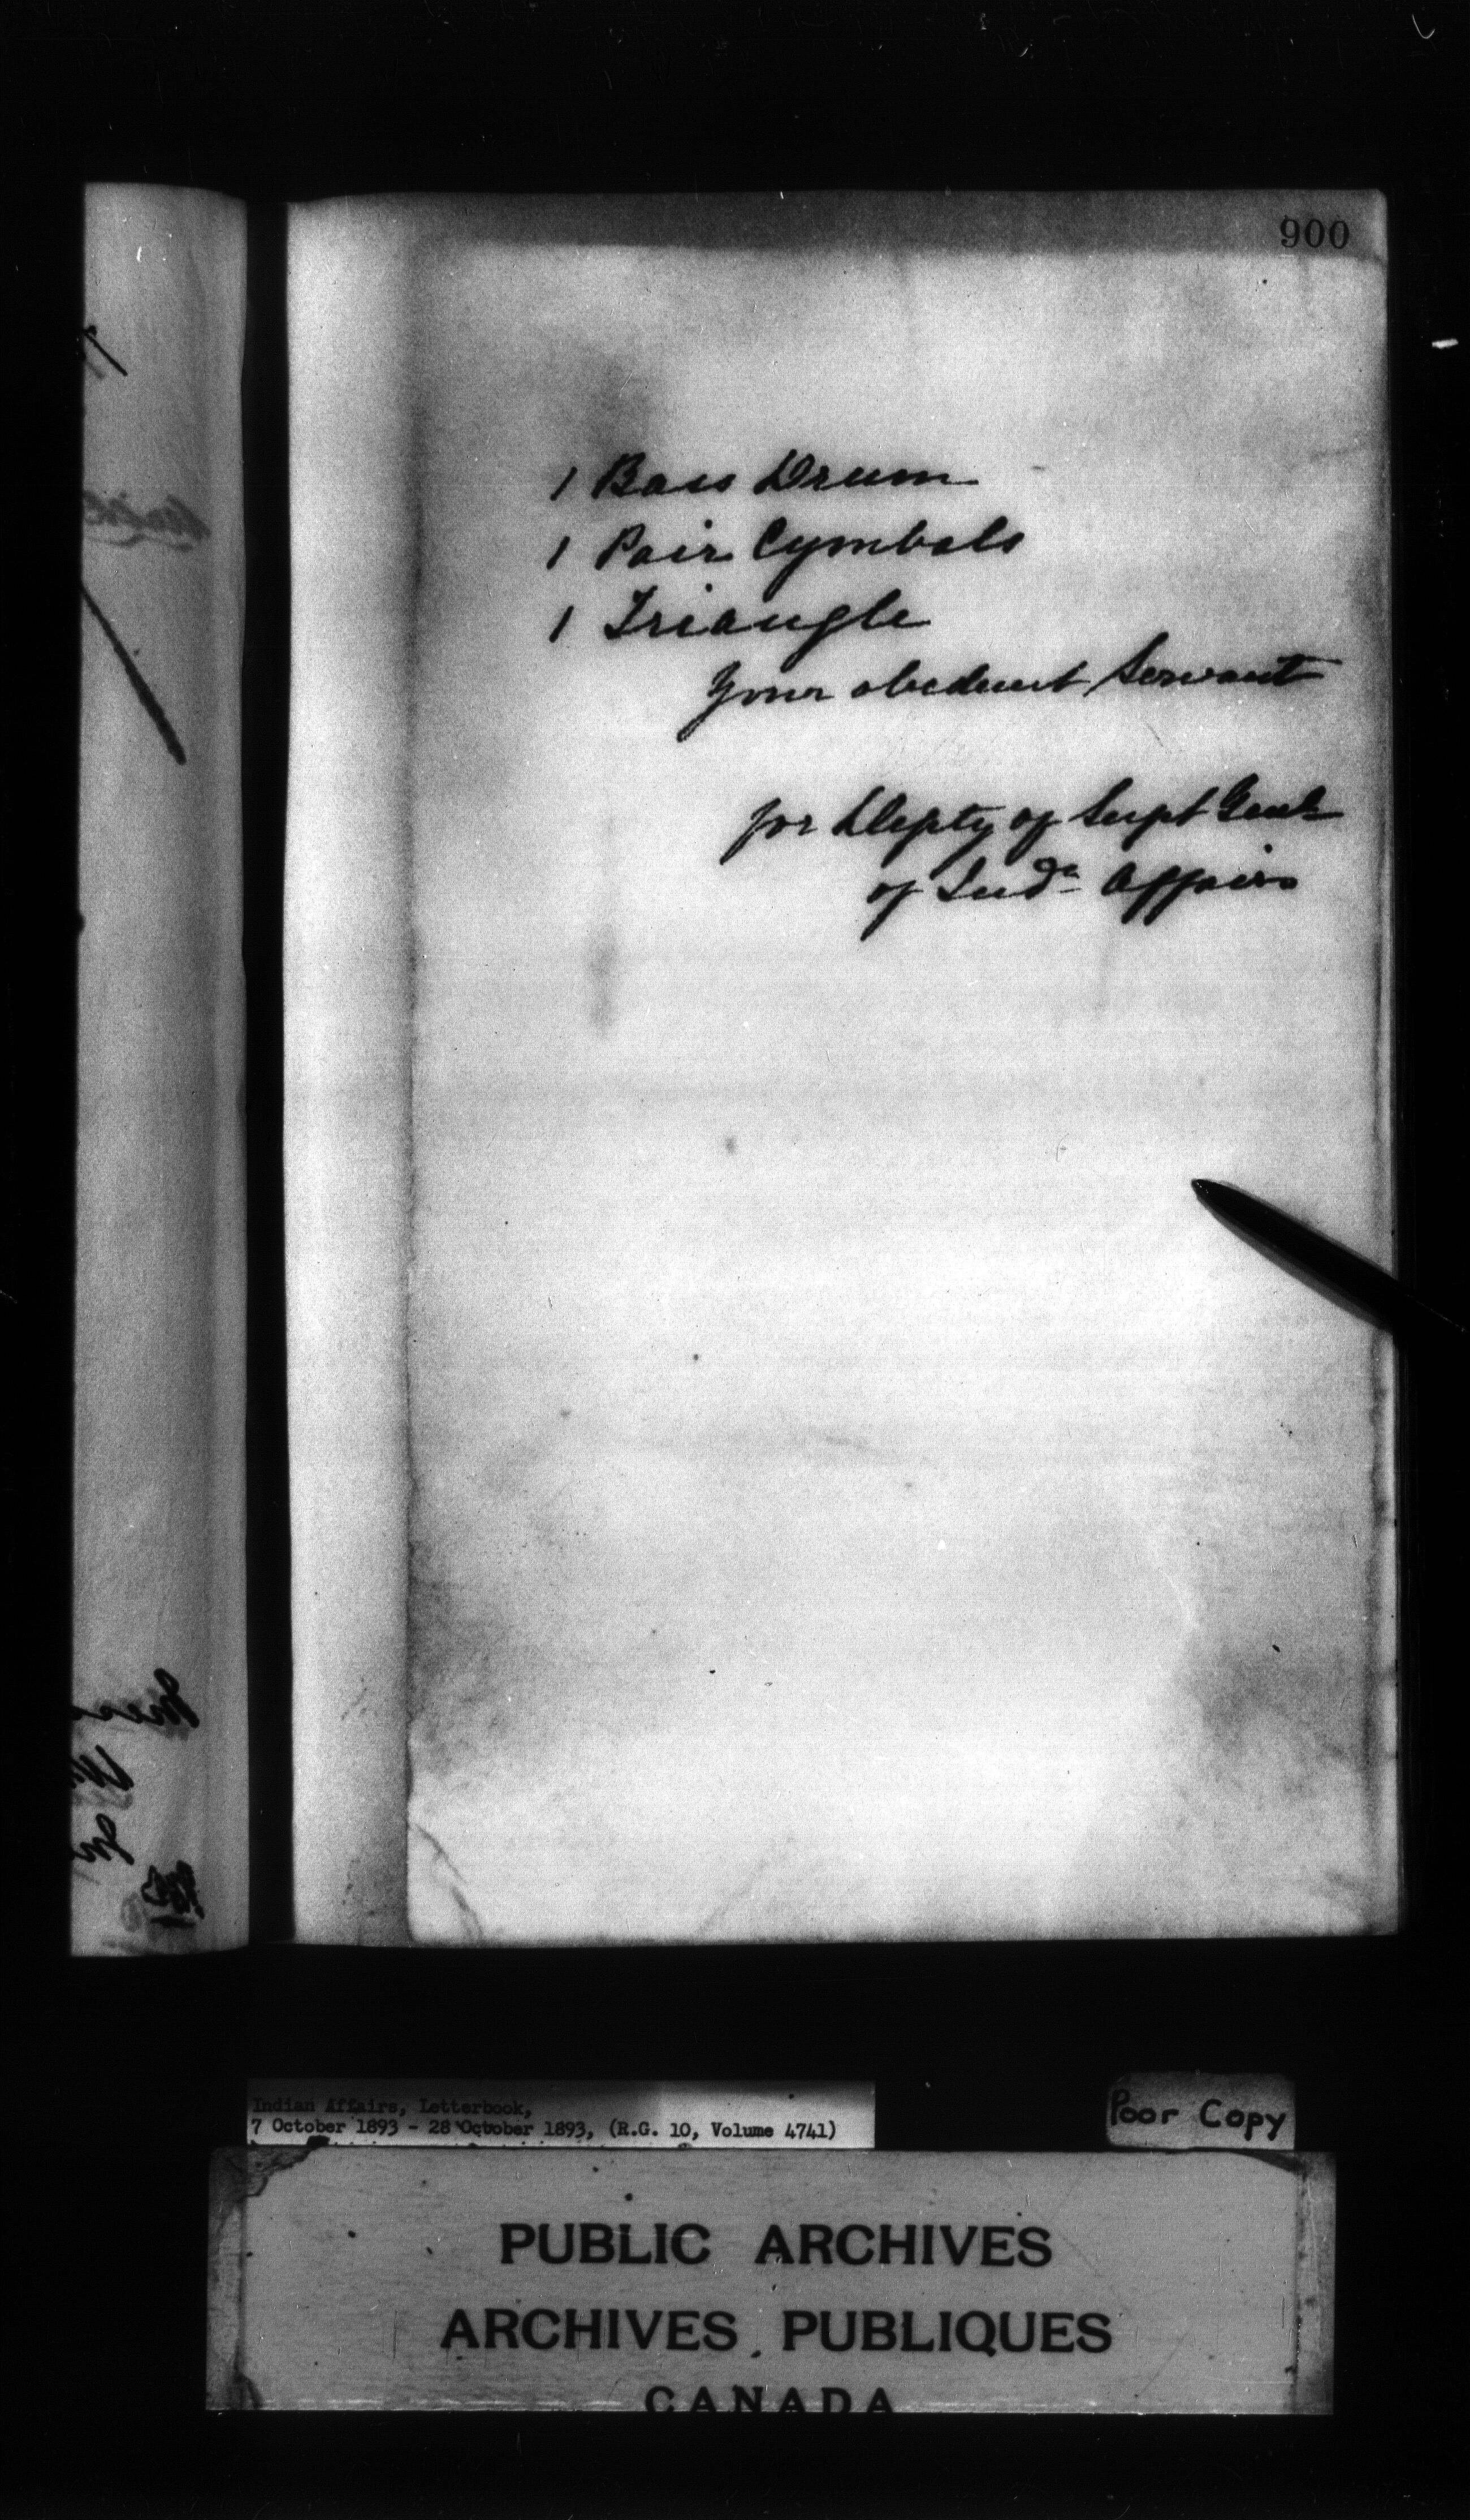 900
1 Bass Drum
1 Pair Cymbals
1 Triangle
Your obedient Servant
for Depty of Supt Genl
of Indn Affairs
Indian Affairs, Letterbook,
7 October 1893 - 28 October 1893, (R.G. 10, Volume 4741)
Poor Copy
PUBLIC ARCHIVES
ARCHIVES PUBLIQUES
CANADA